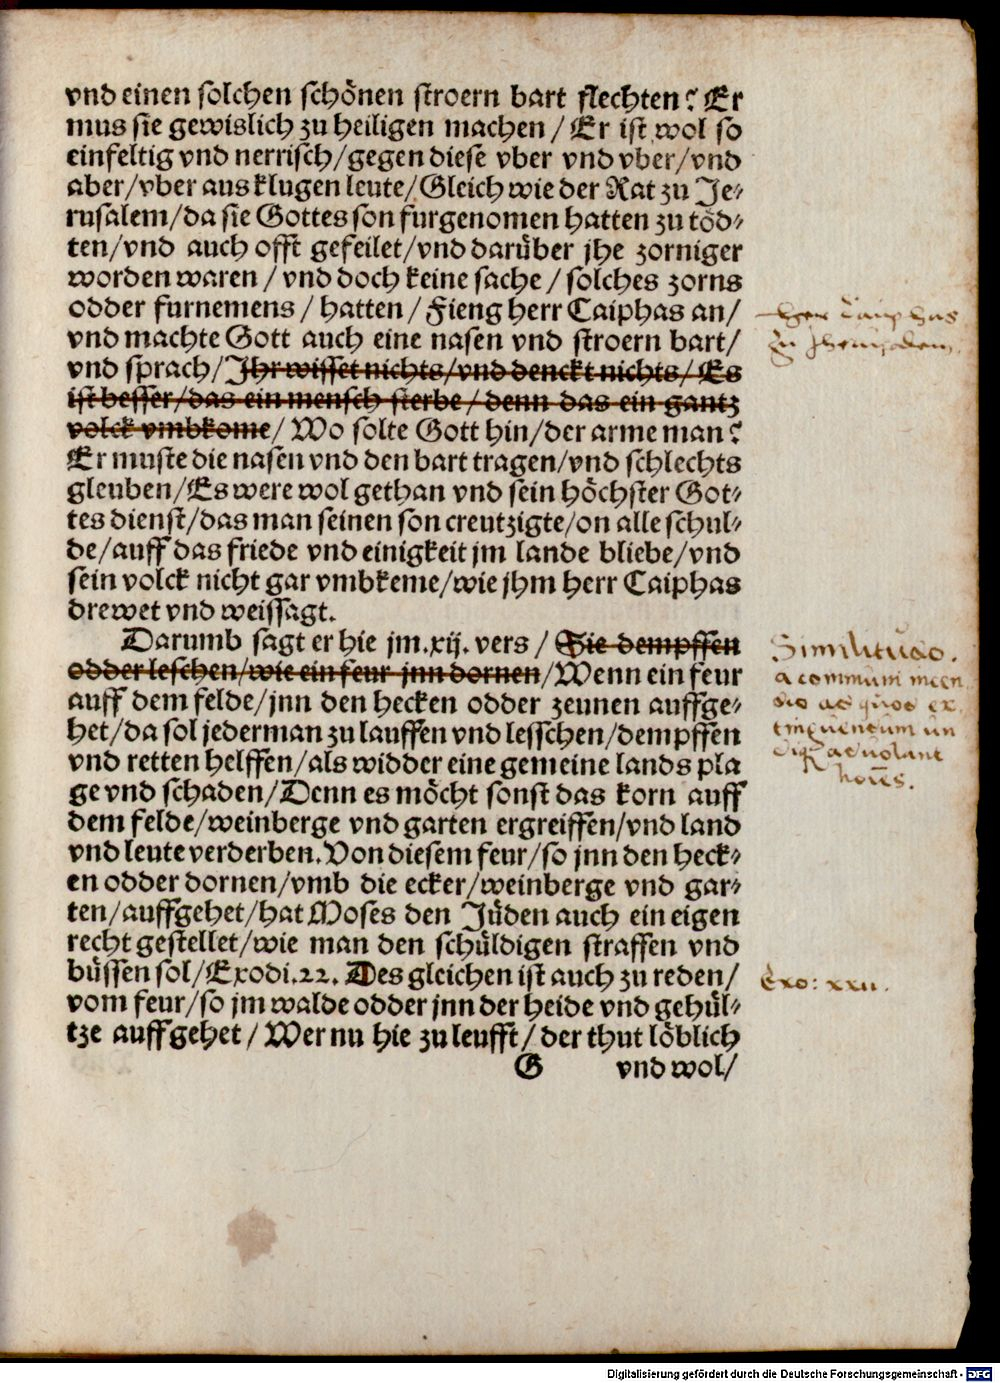 vnd einen solchen schönen stroern bart flechten? Er
mus sie gewislich zu heiligen machen / Er ist wol so
einfeltig vnd nerrisch/gegen diese vber vnd vber/vnd
aber/vber aus klugen leute/Gleich wie der Rat zu Je⸗
rusalem/da sie Gottes son furgenomen hatten zu töd⸗
ten/vnd auch offt gefeilet/vnd darüber jhe zorniger
worden waren / vnd doch keine sache / solches zorns
odder furnemens / hatten / Fieng herr Caiphas an/
vnd machte Gott auch eine nasen vnd stroern bart/
vnd sprach/Jhr wisset nichts/vnd denckt nichts/Es
ist besser/das ein mensch sterbe / denn das ein gantz
volck vmbkome/ Wo solte Gott hin/der arme man?
Er muste die nasen vnd den bart tragen/vnd schlechts
gleuben/Es were wol gethan vnd sein höchster Got⸗
tes dienst/das man seinen son creutzigte/on alle schul⸗
de/auff das friede vnd einigkeit jm lande bliebe/vnd
sein volck nicht gar vmbkeme/wie jhm herr Caiphas
drewet vnd weissagt.
Darumb sagt er hie jm.xij. vers / Sie dempffen
odder leschen/wie ein feur jnn dornen/Wenn ein feur
auff dem felde/jnn den hecken odder zeunen auffge⸗
het/da sol jederman zu lauffen vnd lesschen/dempffen
vnd retten helffen/als widder eine gemeine lands pla
ge vnd schaden/Denn es möcht sonst das korn auff
dem felde/weinberge vnd garten ergreiffen/vnd land
vnd leute verderben.Von diesem feur/so jnn den heck⸗
en odder dornen/vmb die ecker/weinberge vnd gar⸗
ten/auffgehet/hat Moses den Jüden auch ein eigen
recht gestellet/wie man den schüldigen straffen vnd
büssen sol/Exodi.22. Des gleichen ist auch zu reden/
vom feur/so jm walde odder jnn der heide vnd gehül⸗
tze auffgehet / Wer nu hie zu leufft/ der thut löblich
G vnd wol/
Her Caiphas
zu Jherusalem
Similitudo.
a communi incen
dio ad quod ex
tinguendum un
diq advolant
hoīes.
Exo: xxii.
Digitalisierung gefördert durch die Deutsche Forschungsgemeinschaft - DFG